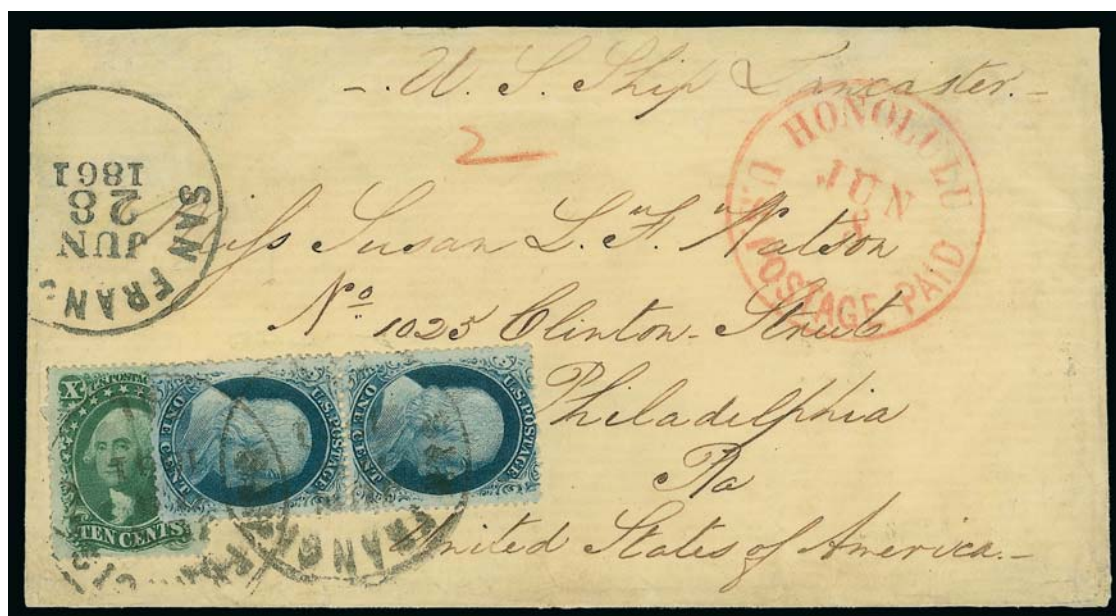 - U. S. Ship Lancaster. -
HONOLULU
JUN
U.S. POSTAGE PAID
2
SAN FRAN
JUN
28
1861
Miss Susan L. F. Watson
No 1025 Clinton Street
Philadelphia
Pa
United States of America. -
X U.S. POSTAG
TEN CENTS
U.S. POSTAGE
ONE CENT
U.S. POSTAGE
ONE CENT